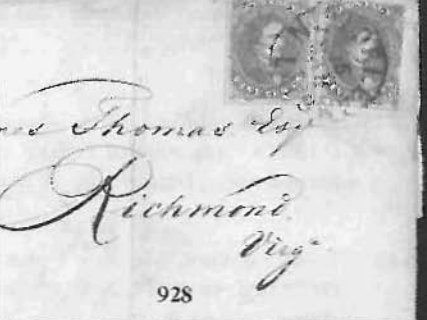 Thomas Esqr
Richmond.
Virga
928